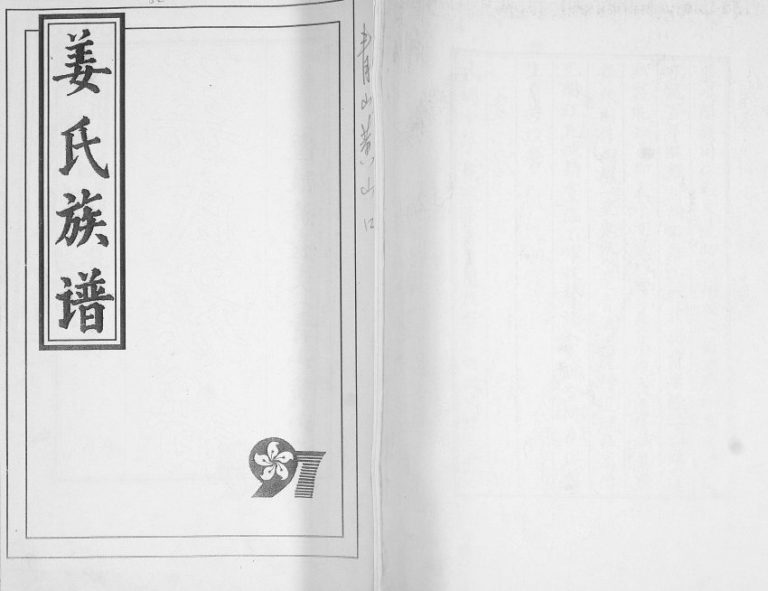 姜氏族谱
97
青山黄山口